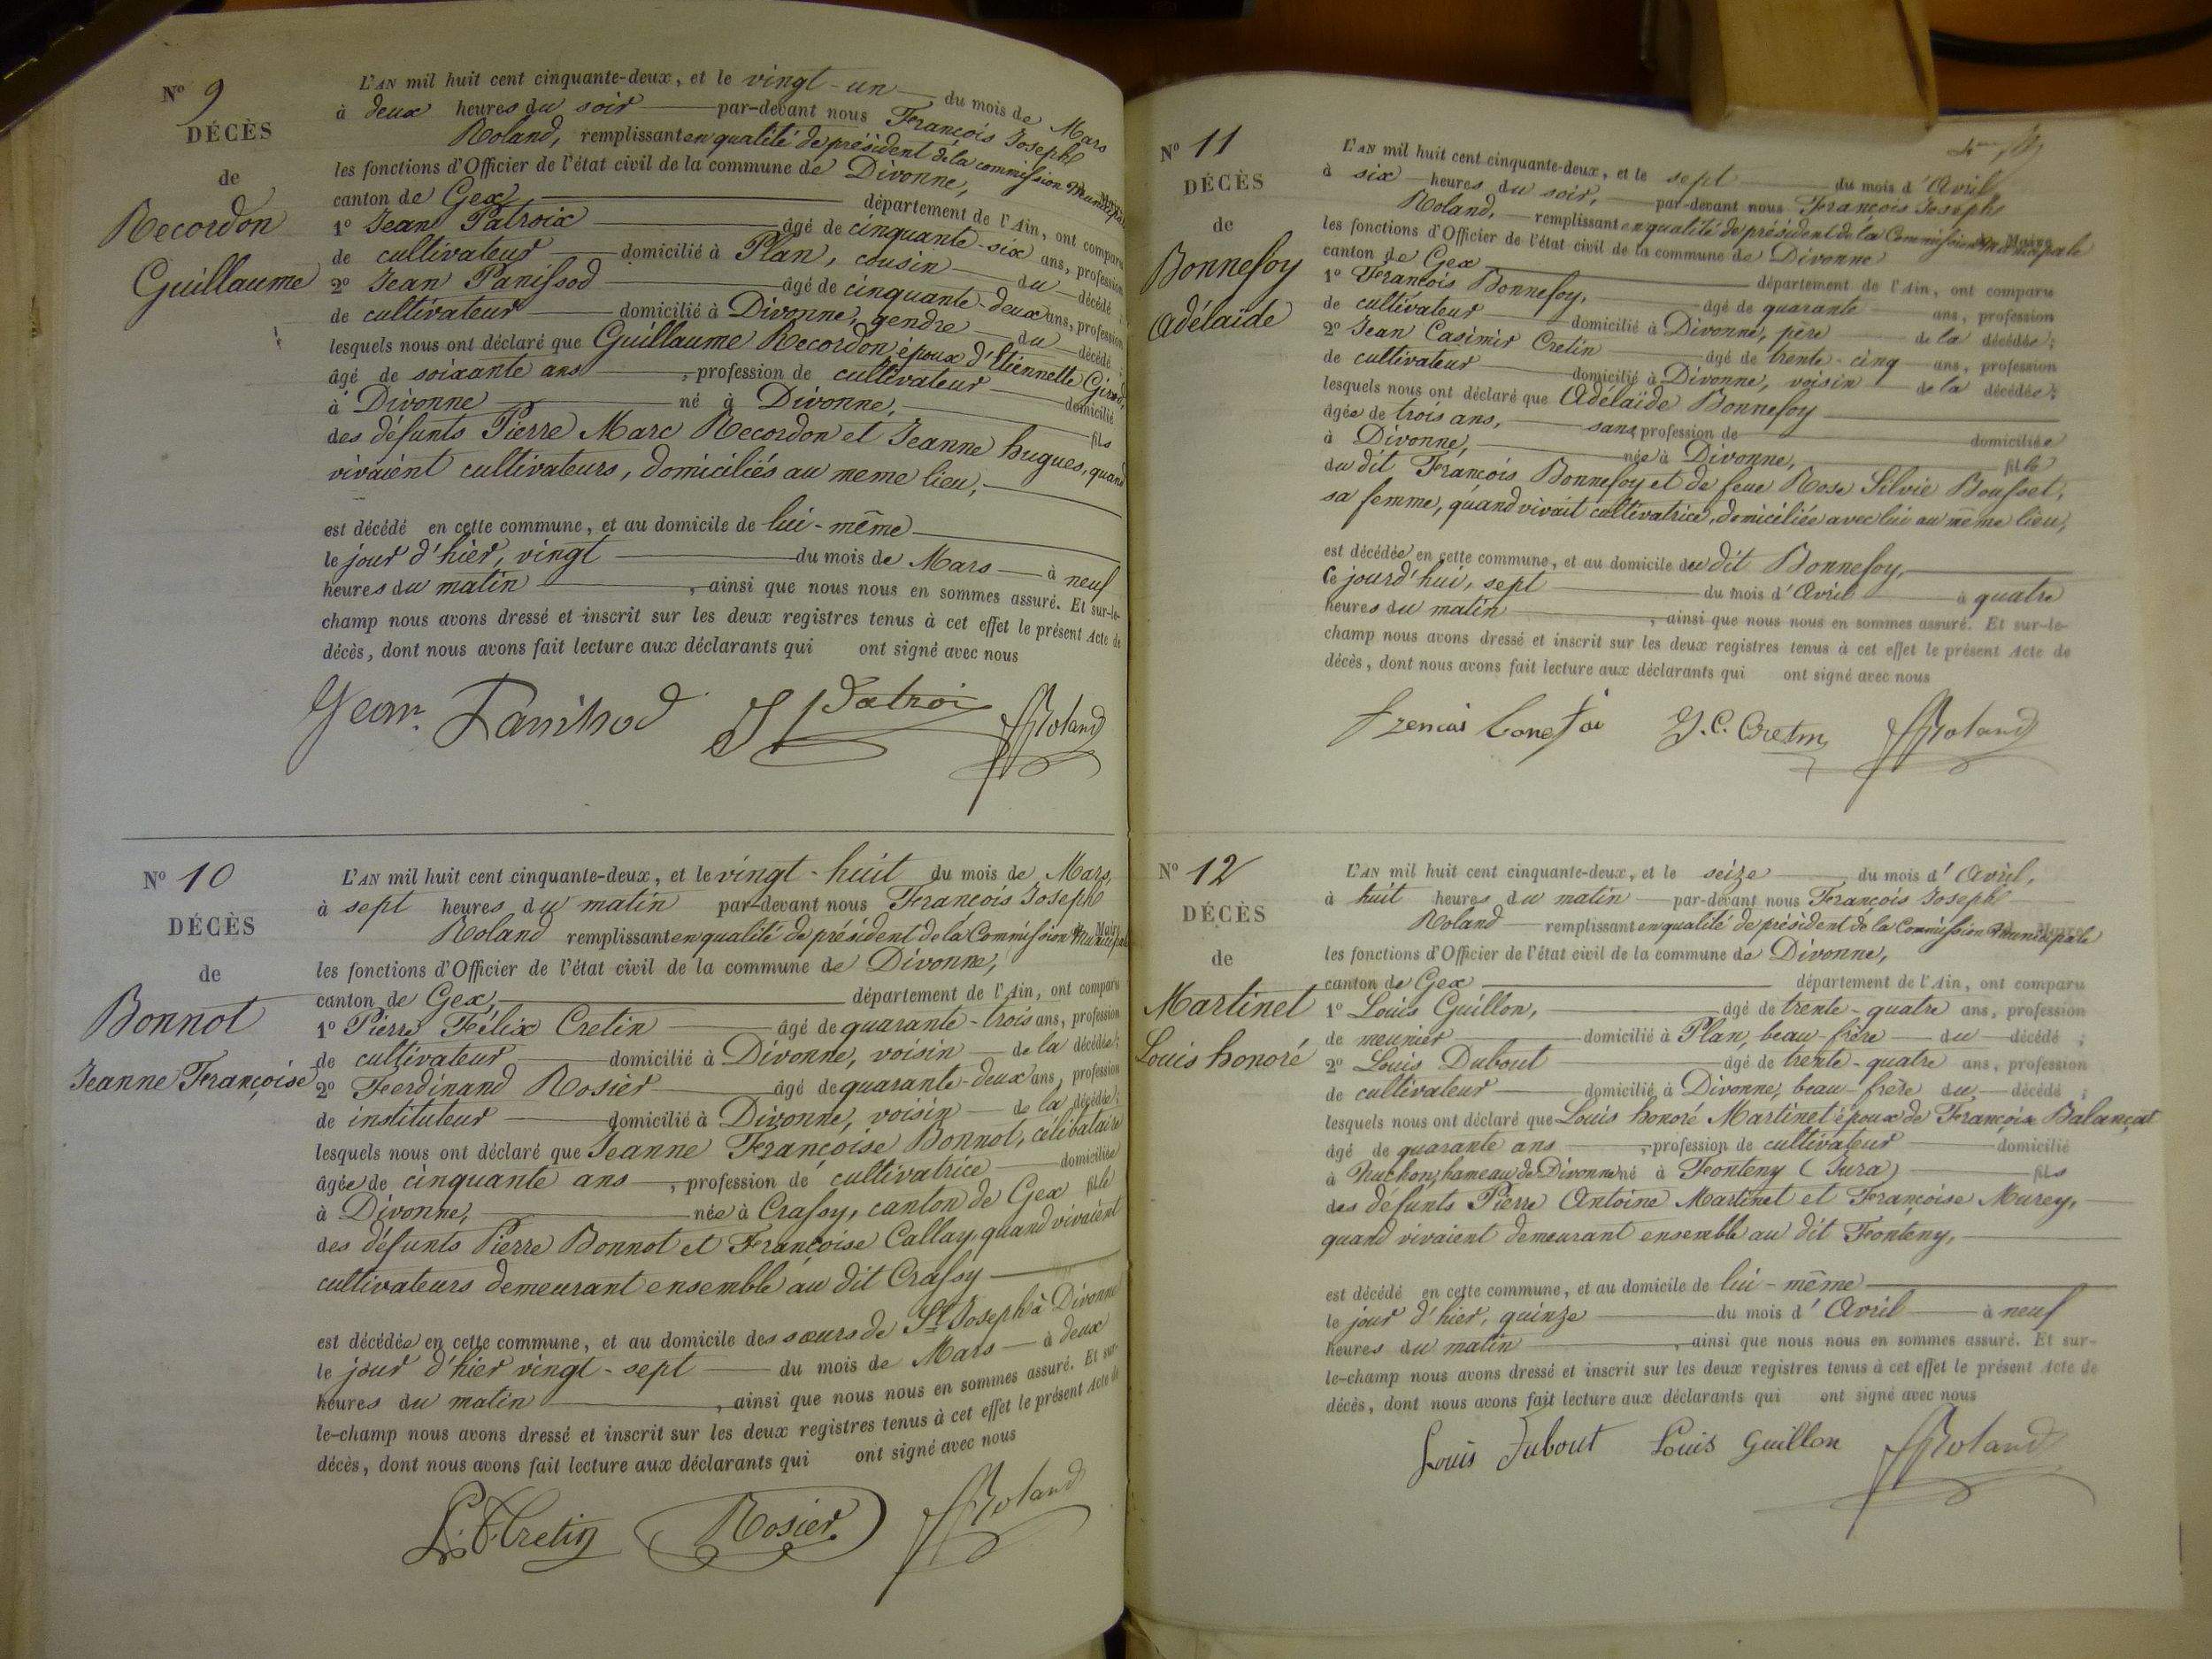 Nº 9
DÉCÈS
de
Recordon
Guillaume
L'AN mil huit cent cinquante-deux, et le vingt-un du mois de Mars
à deux heures du soir par-devant nous François Joseph
Roland, remplissant en qualité de président de la commission Municipale
les fonctions d'Officier de l'état civil de la commune de Divonne,
canton de Gex département de l'Ain, ont comparu
1º Jean Patroix âgé de cinquante-six ans, profession
de cultivateur domicilié à Plan, cousin du décédé;
2º Jean Panissod âgé de cinquante-deux ans, profession
de cultivateur domicilié à Divonne, gendre du décédé;
lesquels nous ont déclaré que Guillaume Recordon, époux d'Etiennette Girod,
âgé de soixante ans, profession de cultivateur domicilié
à Divonne né à Divonne, fils
des défunts Pierre Marc Recordon et Jeanne hugues, quand
vivaient cultivateurs, domiciliés au meme lieu,
est décédé en cette commune, et au domicile de lui-même
le jour d'hier, vingt du mois de Mars à neuf
heures du matin, ainsi que nous nous en sommes assuré. Et sur-le-
champ nous avons dressé et inscrit sur les deux registres tenus à cet effet le présent Acte de
décès, dont nous avons fait lecture aux déclarants qui ont signé avec nous
Jean Panihod Patroi Roland
Nº 10
DÉCÈS
de
Bonnot
Jeanne Françoise
L'AN mil huit cent cinquante-deux, et le vingt-huit du mois de Mars,
à sept heures du matin par-devant nous François Joseph
Roland remplissant en qualité de président de la Commission Municipale
les fonctions d'Officier de l'état civil de la commune de Divonne,
canton de Gex, département de l'Ain, ont comparu
1º Pierre Félix Cretin âgé de quarante-trois ans, profession
de cultivateur domicilié à Divonne, voisin de la décédée;
2º Ferdinand Rosier âgé de quarante-deux ans, profession
de instituteur domicilié à Divonne, voisin de la décédée;
lesquels nous ont déclaré que Jeanne Françoise Bonnot, célibataire
âgée de cinquante ans, profession de cultivatrice domiciliée
à Divonne, née à Crassy, canton de Gex fille
des défunts Pierre Bonnot et Françoise Callay, quand vivaient
cultivateurs demeurant ensemble au dit Crassy
est décédée en cette commune, et au domicile des sœurs de St Joseph à Divonne
le jour d'hier vingt-sept du mois de Mars à deux
heures du matin, ainsi que nous nous en sommes assuré. Et sur-
le-champ nous avons dressé et inscrit sur les deux registres tenus à cet effet le présent Acte de
décès, dont nous avons fait lecture aux déclarants qui ont signé avec nous
Cretin Rosier Roland
Nº 11
DÉCÈS
de
Bonnefoy
Adélaïde
L'AN mil huit cent cinquante-deux, et le sept du mois d'Avril
à six heures du soir, par-devant nous François Joseph
Roland, remplissant en qualité de président de la Commission Municipale
les fonctions d'Officier de l'état civil de la commune de Divonne
canton de Gex département de l'Ain, ont comparu
1º François Bonnefoy, âgé de quarante ans, profession
de cultivateur domicilié à Divonne, père de la décédée;
2º Jean Casimir Cretin âgé de trente-cinq ans, profession
de cultivateur domicilié à Divonne, voisin de la décédée;
lesquels nous ont déclaré que Adélaïde Bonnefoy
âgée de trois ans, sans profession de domiciliée
à Divonne, née à Divonne, fille
du dit François Bonnefoy et de feue Rose Silvie Bousset,
sa femme, quand vivait cultivatrice, domiciliée avec lui au même lieu,
est décédée en cette commune, et au domicile du dit Bonnefoy,
Ce jourd'hui, sept du mois d'Avril à quatre
heures du matin, ainsi que nous nous en sommes assuré. Et sur-le-
champ nous avons dressé et inscrit sur les deux registres tenus à cet effet le présent Acte de
décès, dont nous avons fait lecture aux déclarants qui ont signé avec nous
J. C. Cretin Roland
Nº 12
DÉCÈS
de
Martinet
Louis honoré
L'AN mil huit cent cinquante-deux, et le seize du mois d'Avril,
à huit heures du matin par-devant nous François Joseph
Roland remplissant en qualité de président de la Commission Municipale
les fonctions d'Officier de l'état civil de la commune de Divonne,
canton de Gex département de l'Ain, ont comparu
1º Louis Guillon, âgé de trente-quatre ans, profession
de meunier domicilié à Plan, beau frère du décédé;
2º Louis Dubout âgé de trente-quatre ans, profession
de cultivateur domicilié à Divonne, beau-frère du décédé;
lesquels nous ont déclaré que Louis honoré Martinet époux de Françoise Balançat
âgé de quarante ans, profession de cultivateur domicilié
à hameau de Divonne né à Fonteny (Jura) fils
des défunts Pierre Antoine Martinet et Françoise Murey,
quand vivaient demeurant ensemble au dit Fonteny,
est décédé en cette commune, et au domicile de lui-même
le jour d'hier, quinze du mois d'Avril à neuf
heures du matin, ainsi que nous nous en sommes assuré. Et sur-
le-champ nous avons dressé et inscrit sur les deux registres tenus à cet effet le présent Acte de
décès, dont nous avons fait lecture aux déclarants qui ont signé avec nous
Louis Dubout Louis Guillon Roland